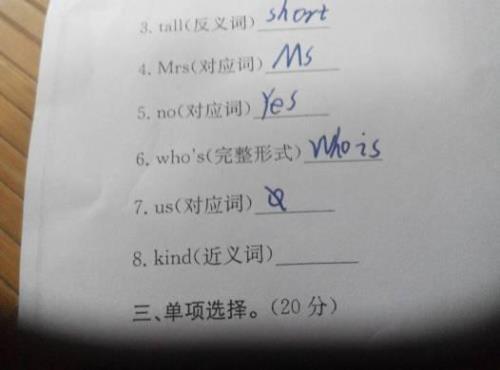 3. tall(反义词) short
4. Mrs(对应词) Ms
5. no(对应词) Yes
6. who's(完整形式) Who is
7. us(对应词)
8. kind(近义词)
三、单项选择。(20 分)